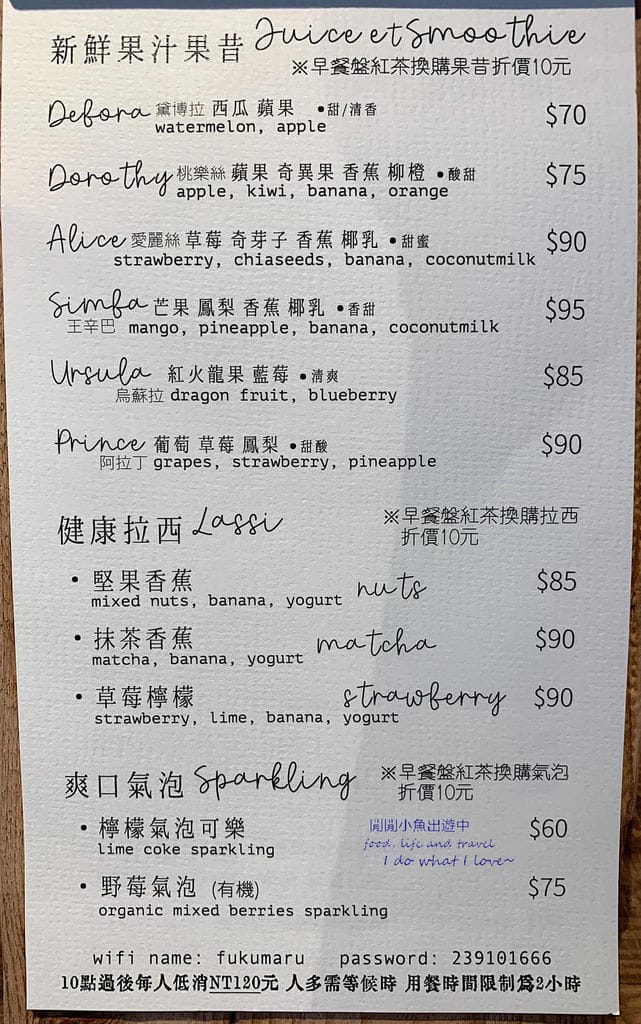 新鮮果汁果昔 Juice et Smoothie
※早餐盤紅茶換購果昔折價10元
Debora 黛博拉 西瓜 蘋果 •甜/清香 $70
watermelon, apple
Dorothy 桃樂絲 蘋果 奇異果 香蕉 柳橙 •酸甜 $75
apple, kiwi, banana, orange
Alice 愛麗絲 草莓 奇芽子 香蕉 椰乳 •甜蜜 $90
strawberry, chiaseeds, banana, coconutmilk
Simba 芒果 鳳梨 香蕉 椰乳 •香甜 $95
王辛巴 mango, pineapple, banana, coconutmilk
Ursula 紅火龍果 藍莓 •清爽 $85
烏蘇拉 dragon fruit, blueberry
Prince 葡萄 草莓 鳳梨 •甜酸 $90
阿拉丁 grapes, strawberry, pineapple
健康拉西 Lassi ※早餐盤紅茶換購拉西
折價10元
• 堅果香蕉 nuts $85
mixed nuts, banana, yogurt
• 抹茶香蕉 matcha $90
matcha, banana, yogurt
• 草莓檸檬 strawberry $90
strawberry, lime, banana, yogurt
爽口氣泡 Sparkling ※早餐盤紅茶換購氣泡
折價10元
• 檸檬氣泡可樂 $60
lime coke sparkling
閒閒小魚出遊中
food, life and travel
I do what I love~
• 野莓氣泡 (有機) $75
organic mixed berries sparkling
wifi name: fukumaru password: 239101666
10點過後每人低消NT120元 人多需等候時 用餐時間限制為2小時